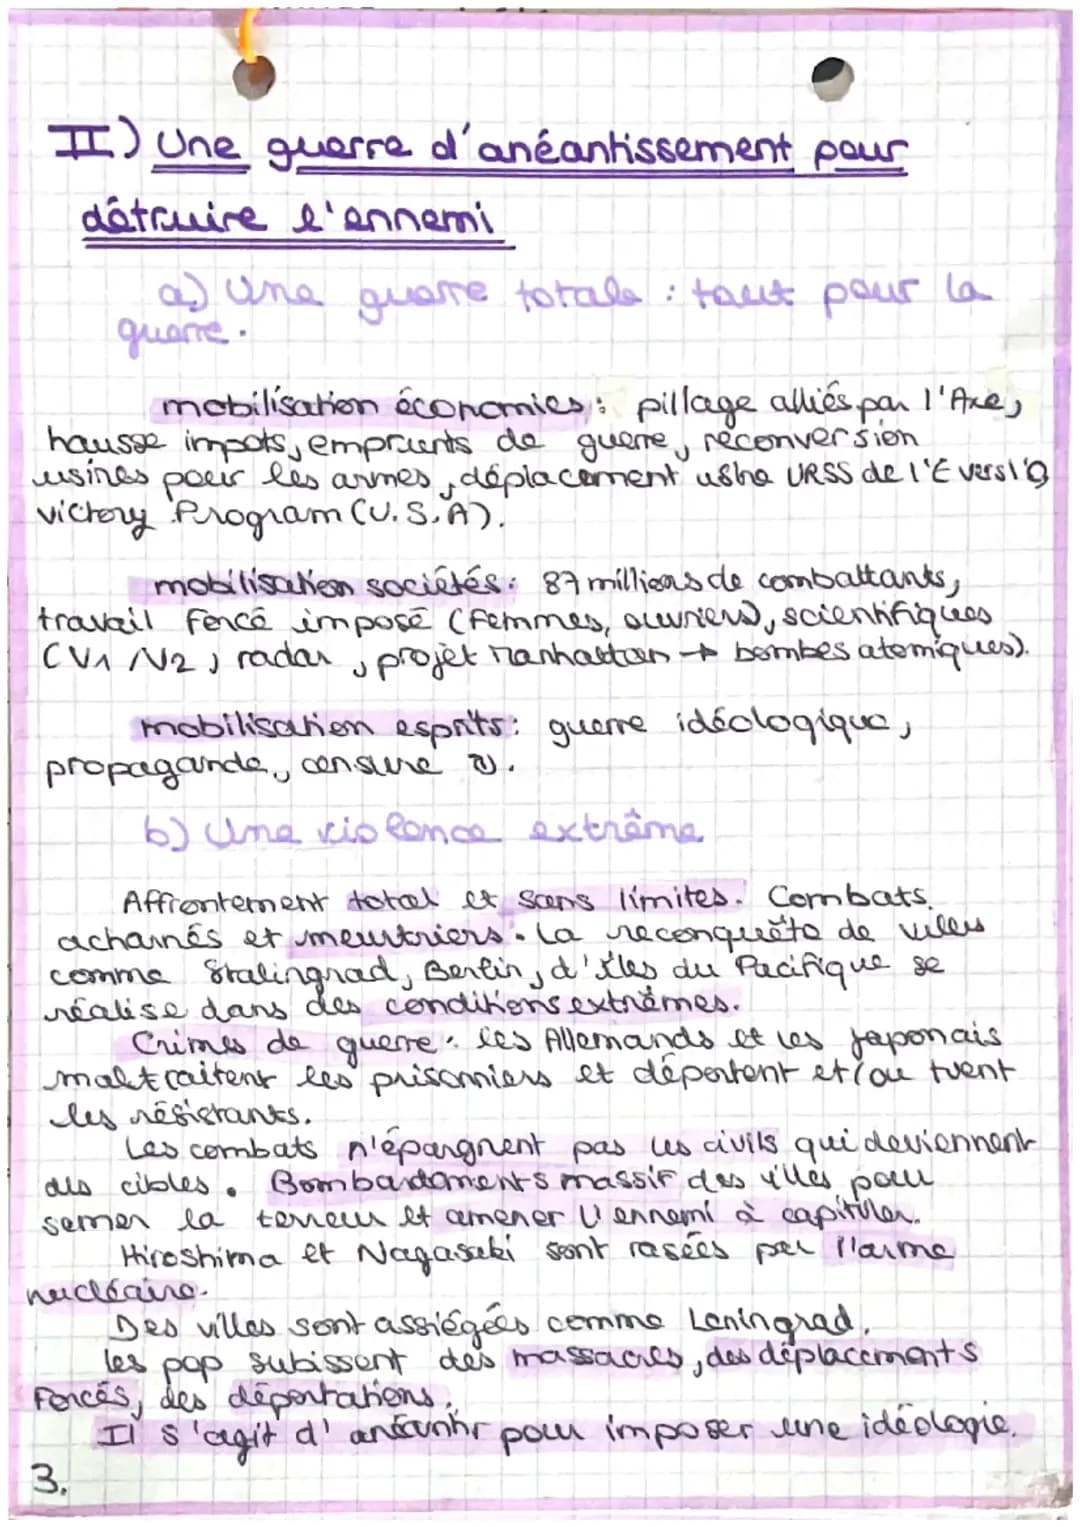 II) Une guerre d'anéantissement pour
détruire l'ennemi
a) Une guerre totale : tout pour la
guerre.
mobilisation économies : pillage alliés par l'Axe,
hausse impots, emprunts de guerre, reconversion
usines pour les armes, déplacement usine URSS de l'E vers l'O
victory Program (U.S.A).
mobilisation sociétés : 87 millions de combattants,
travail forcé imposé (femmes, ouvriers), scientifiques
(V1 /V2, radar, projet Manhattan → bombes atomiques).
mobilisation esprits : guerre idéologique,
propagande, censure
b) Une violence extrême
Affrontement total et sans limites. Combats
acharnés et meurtriers. La reconquête de villes
comme Stalingrad, Berlin, d'îles du Pacifique se
réalise dans des conditions extrêmes.
Crimes de guerre : les Allemands et les Japonais
maltraitent les prisonniers et déportent et/ou tuent
les résistants.
Les combats n'épargnent pas les civils qui deviennent
des cibles. Bombardements massif des villes pour
semer la terreur et amener l'ennemi à capituler.
Hiroshima et Nagasaki sont rasées par l'arme
nucléaire.
Des villes sont assiégées comme Leningrad.
les pop subissent des massacres, des déplacements
forcés, des déportations.
Il s'agit d'anéantir pour imposer une idéologie.
3.